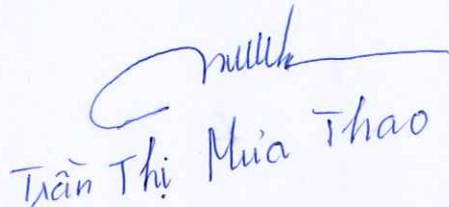 Trần Thị Mùa Thao